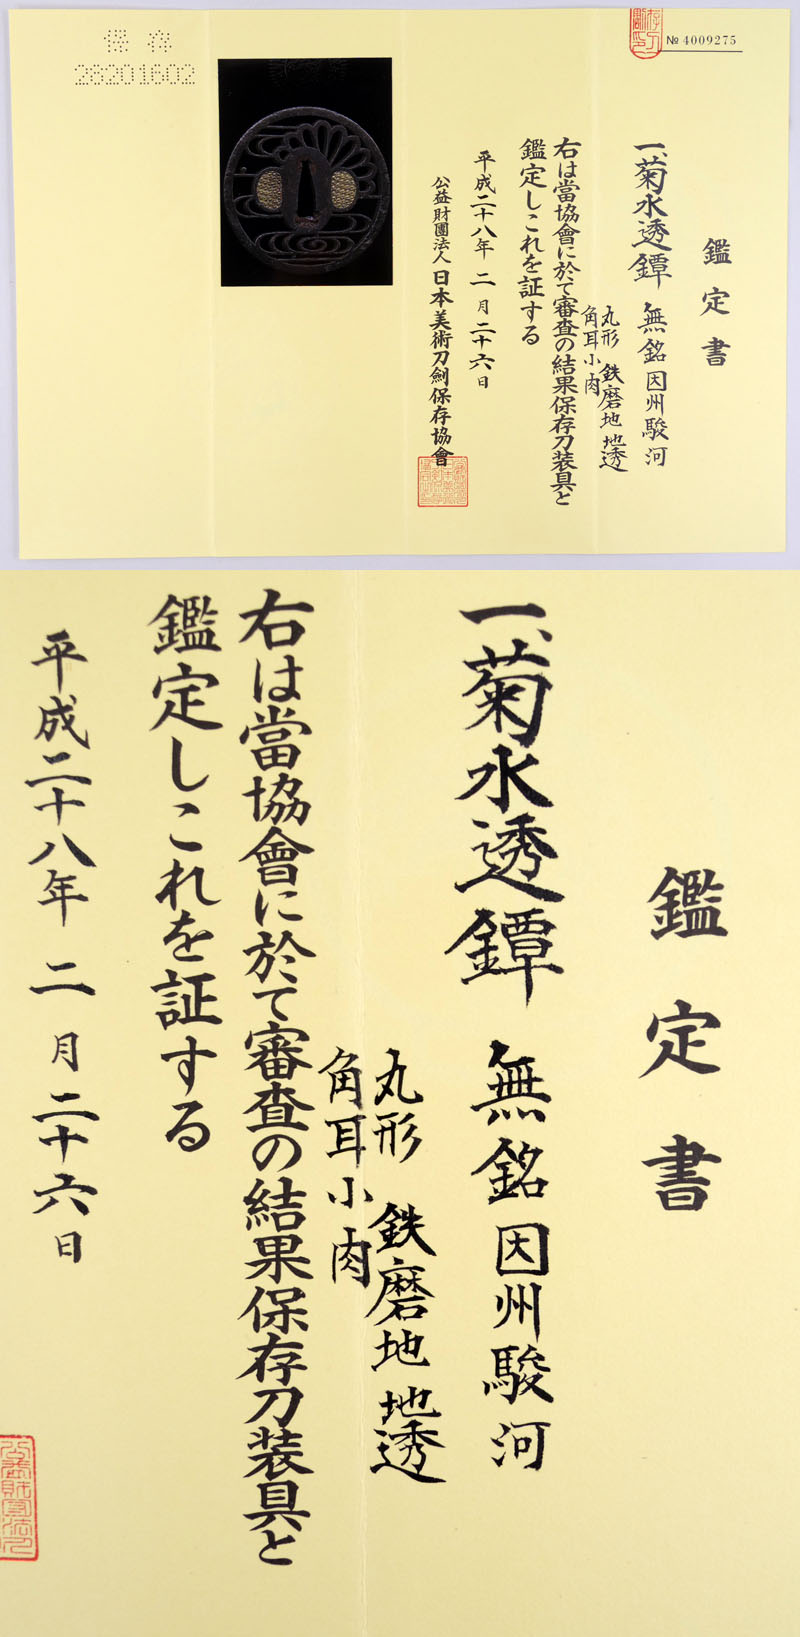 № 4009275
鑑定書
一、菊水透鐔 無銘 因州駿河
丸形 鉄磨地 地透
角耳小肉
右は當協會に於て審査の結果保存刀装具と
鑑定しこれを証する
平成二十八年 二月二十六日
公益財團法人 日本美術刀劍保存協會
保存
28201602
鑑定書
一、菊水透鐔 無銘 因州駿河
丸形 鉄磨地 地透
角耳小肉
右は當協會に於て審査の結果保存刀装具と
鑑定しこれを証する
平成二十八年 二月二十六日